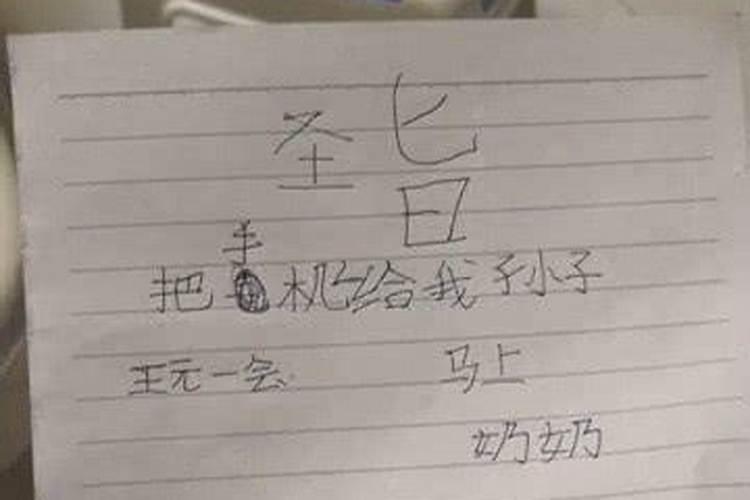 圣旨
把手机给我孙子
玩一会 马上
奶奶